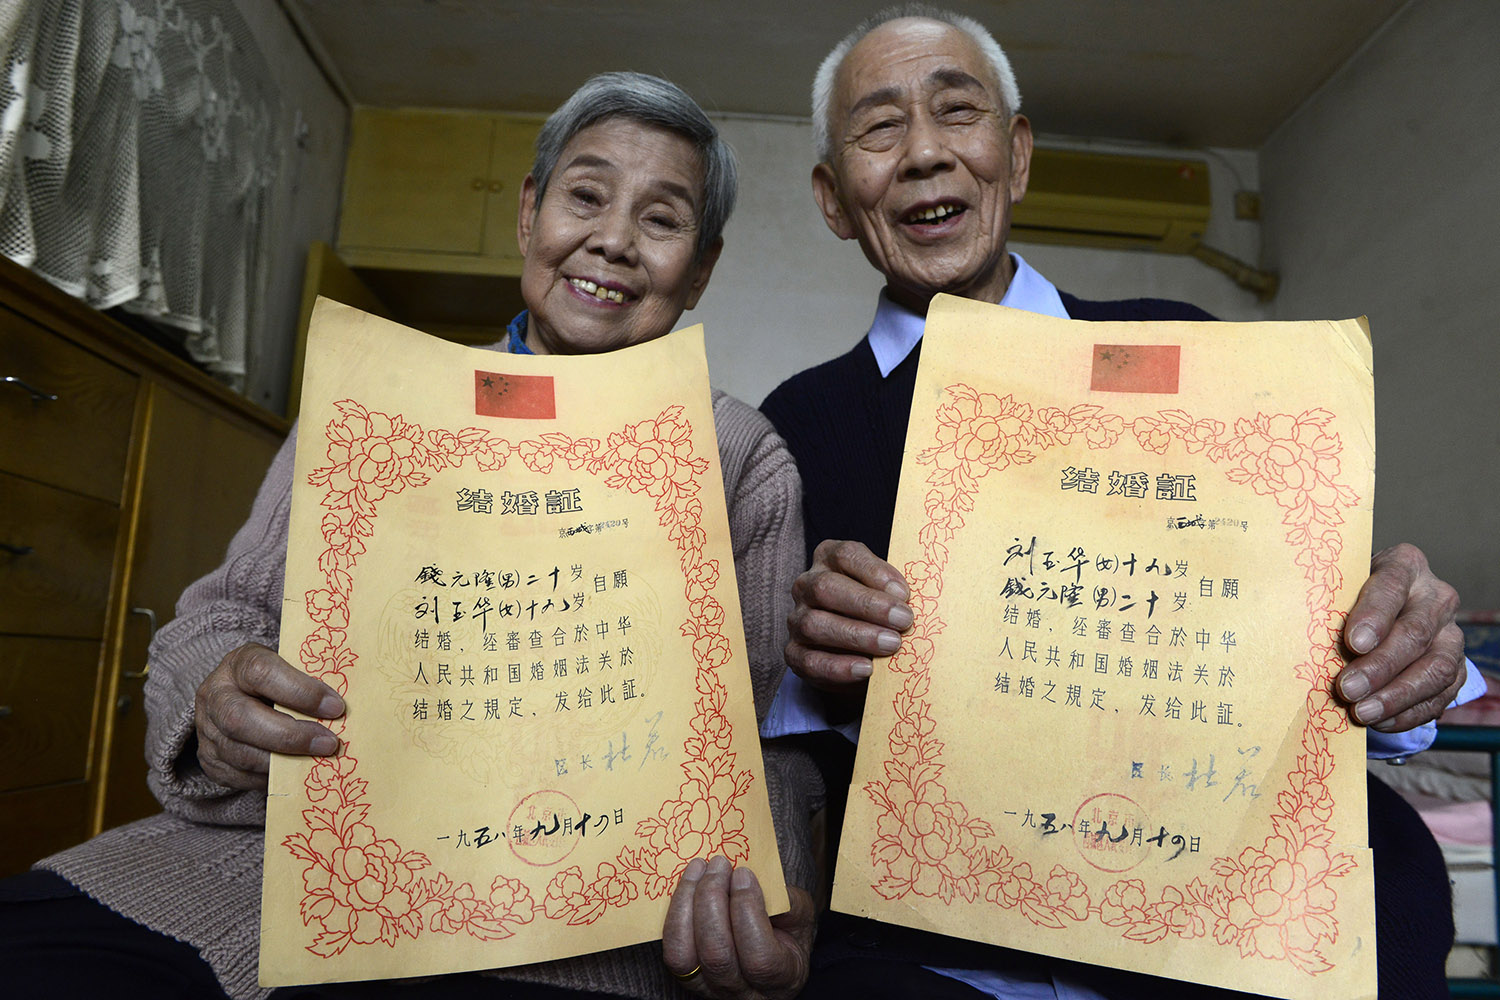 结婚証
京西城字第2420号
錢元隆(男)二十岁
刘玉华(女)十九岁
自願
结婚、经審查合於中华
人民共和国婚姻法关於
结婚之規定，发给此証。
区长 杜若
一九五八年九月十四日
北京市
结婚証
京西城字第2420号
刘玉华(女)十九岁
錢元隆(男)二十岁
自願
结婚、经審查合於中华
人民共和国婚姻法关於
结婚之規定，发给此証。
区长 杜若
一九五八年九月十四日
北京市